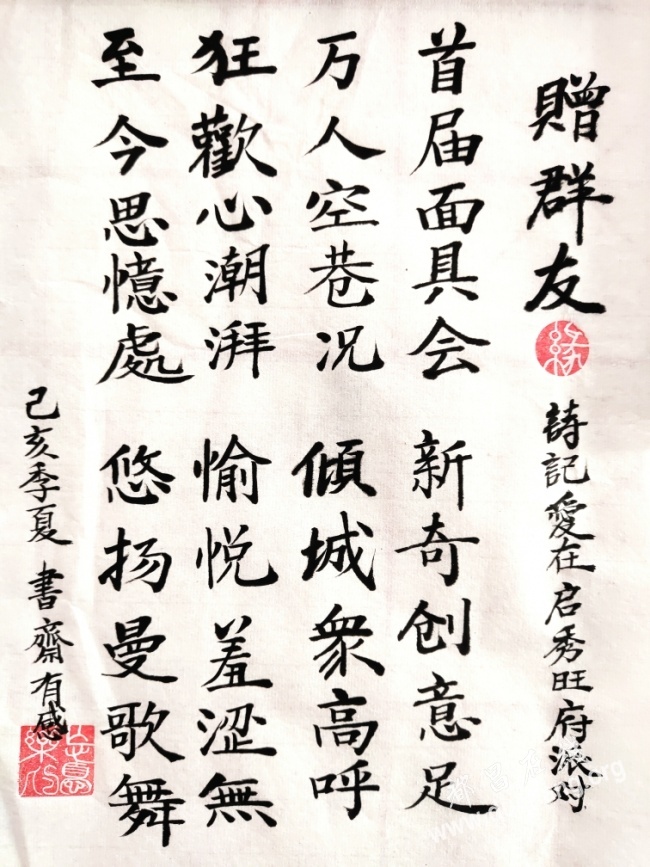 贈群友
緣
詩記愛在启秀旺府派对
首届面具会 新奇创意足
万人空巷况 傾城衆高呼
狂歡心潮湃 愉悦羞涩無
至今思憶處 悠扬曼歌舞
己亥季夏 書齋有感